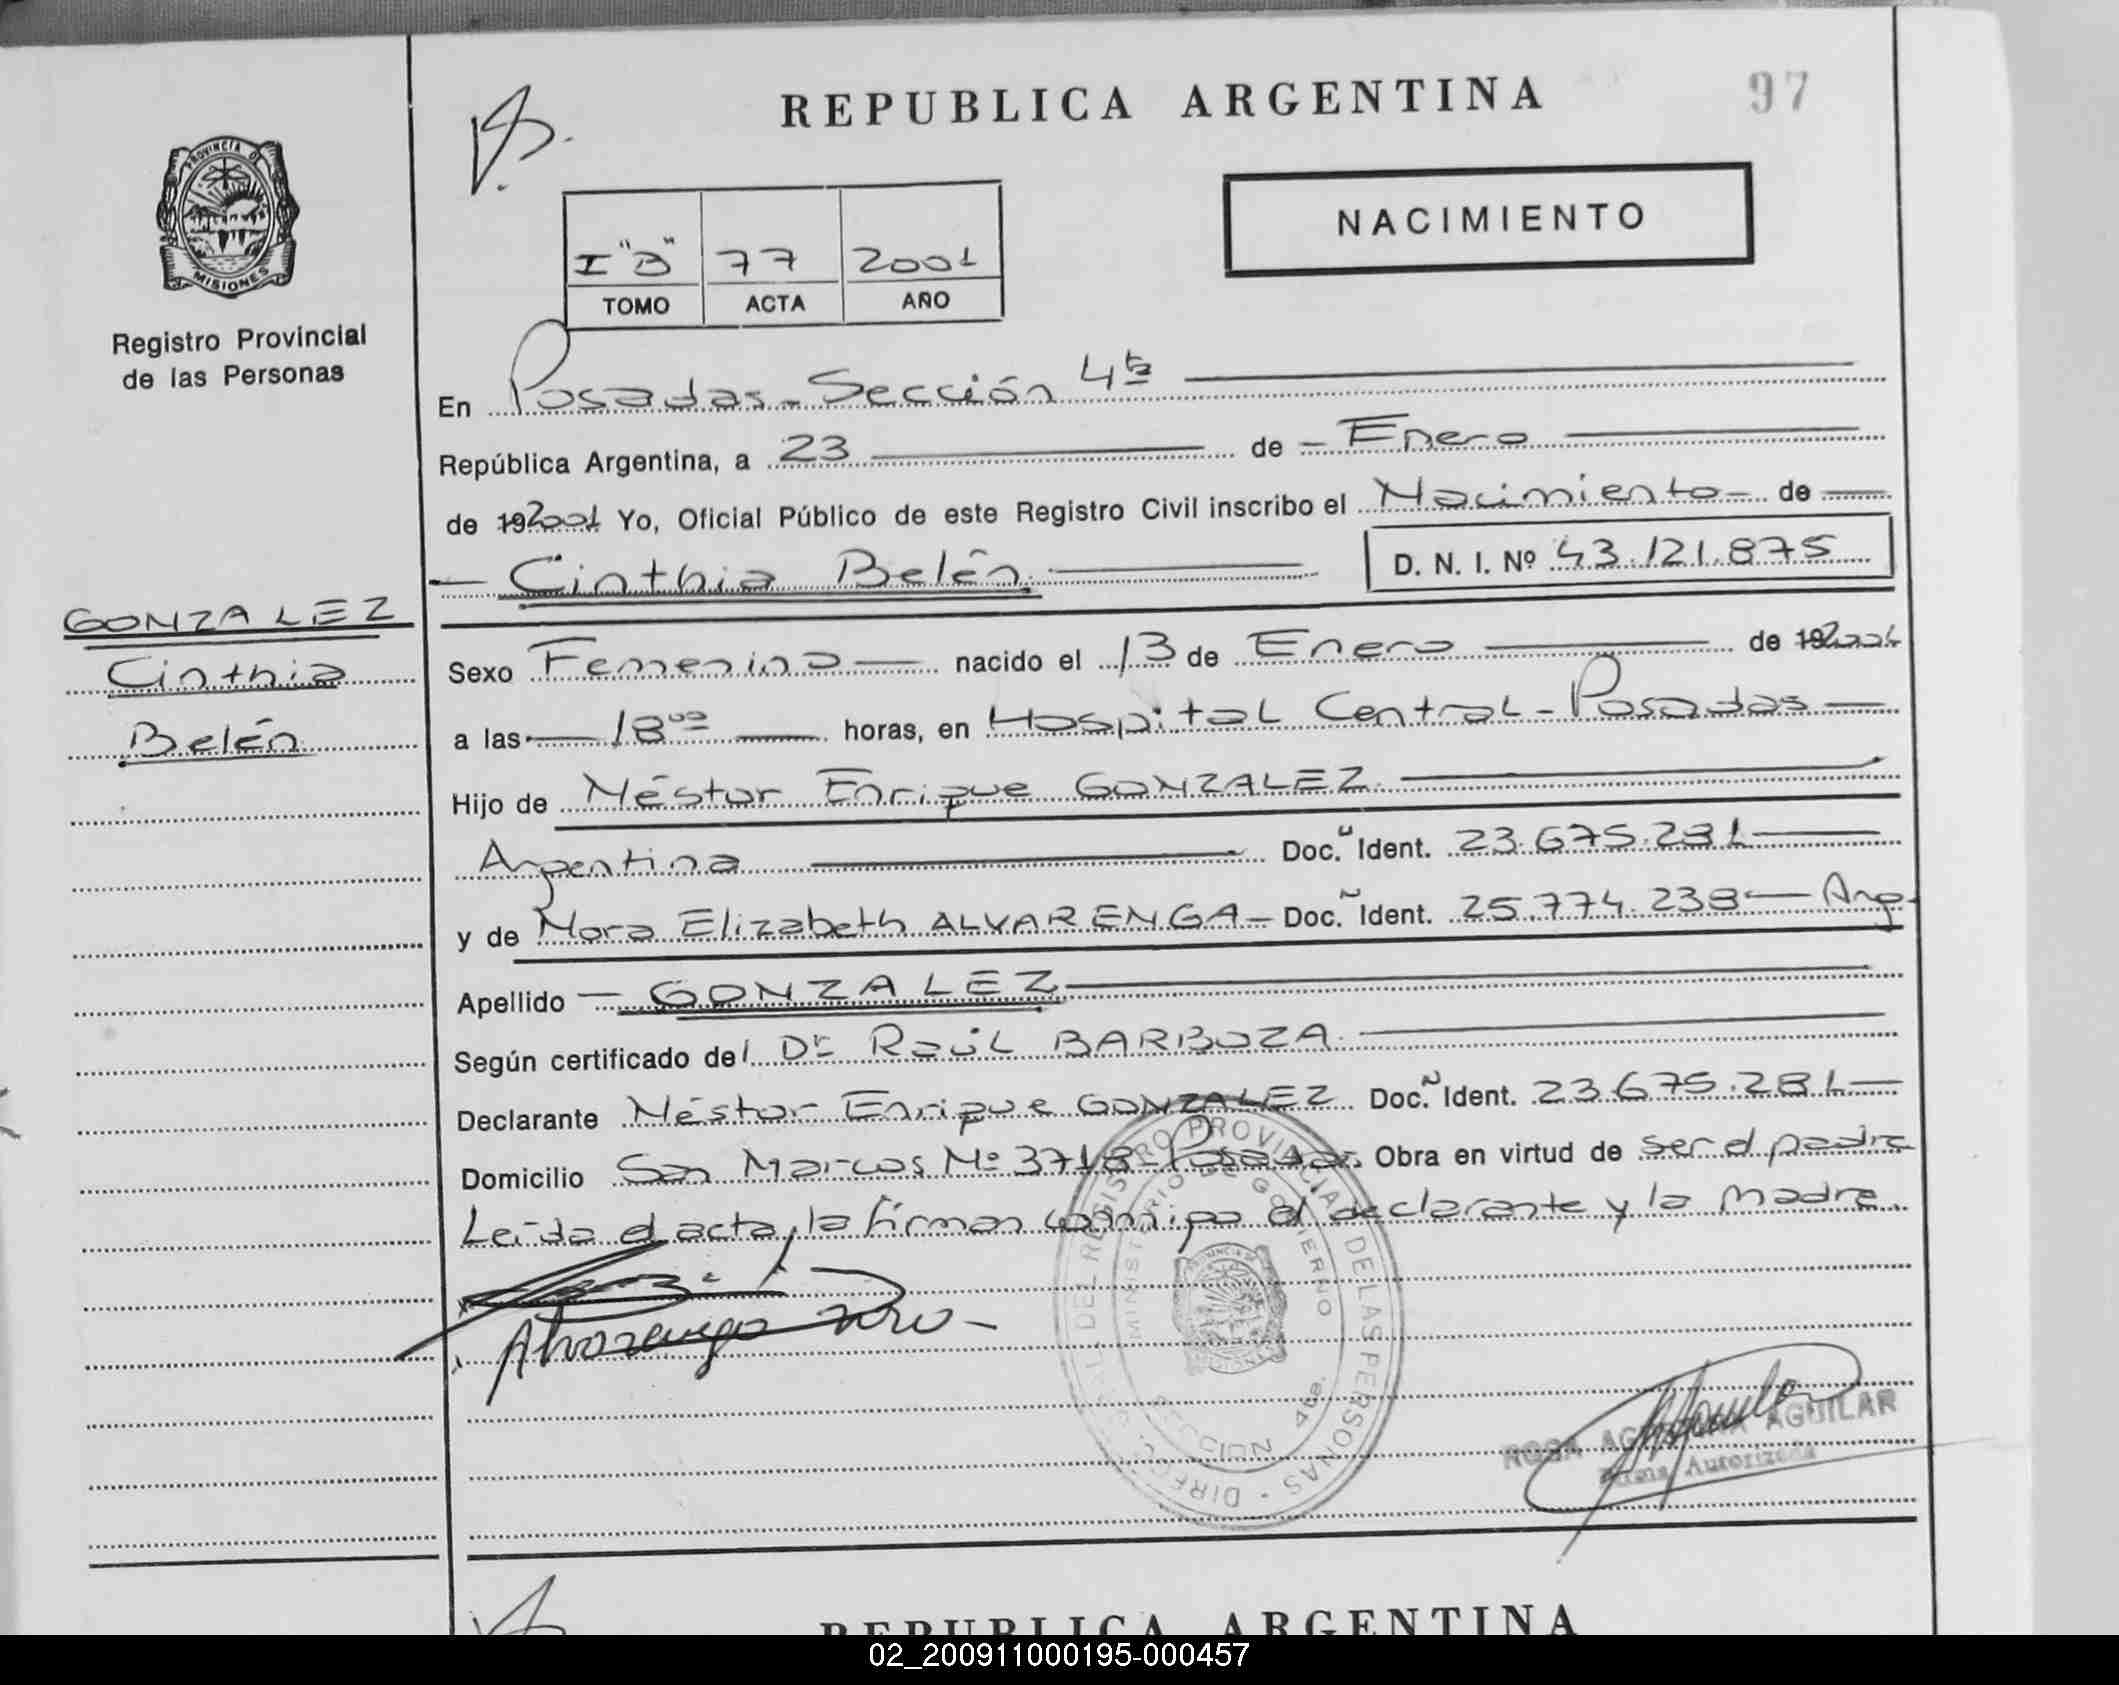 REPUBLICA ARGENTINA
97
PROVINCIA DE
MISIONES
Registro Provincial
de las Personas
NACIMIENTO
I "B" 77 2001
TOMO ACTA AÑO
En Posadas - Sección 4ta
República Argentina, a 23 de - Enero
de 192001 Yo, Oficial Público de este Registro Civil inscribo el Nacimiento - de
Cinthia Belén. D. N. I. Nº 43.121.875
GONZALEZ
Cinthia
Belén
Sexo Femenino nacido el 13 de Enero de 192001
a las 18°° horas, en Hospital Central - Posadas
Hijo de Néstor Enrique GONZALEZ.
Argentina Doc. Ident. 23.675.281
y de Nora Elizabeth ALVARENGA - Doc. Ident. 25.774.238 - Arg.
Apellido - GONZALEZ
Según certificado del Dr Raúl BARBOZA.
Declarante Néstor Enrique GONZALEZ Doc. Ident. 23.675.281
Domicilio San Marcos Nº 3718 - Posadas. Obra en virtud de ser el padre
Leída el acta, la firman conmigo el declarante y la madre.
Alvarenga
DIREC. GRAL. DEL REGISTRO PROVINCIAL DE LAS PERSONAS
MINISTERIO DE GOBIERNO
PROVINCIA DE
MISIONES
SECCION 4ta.
ROSA AGUSTINA AGUILAR
Firma Autorizada
REPUBLICA ARGENTINA
02_200911000195-000457